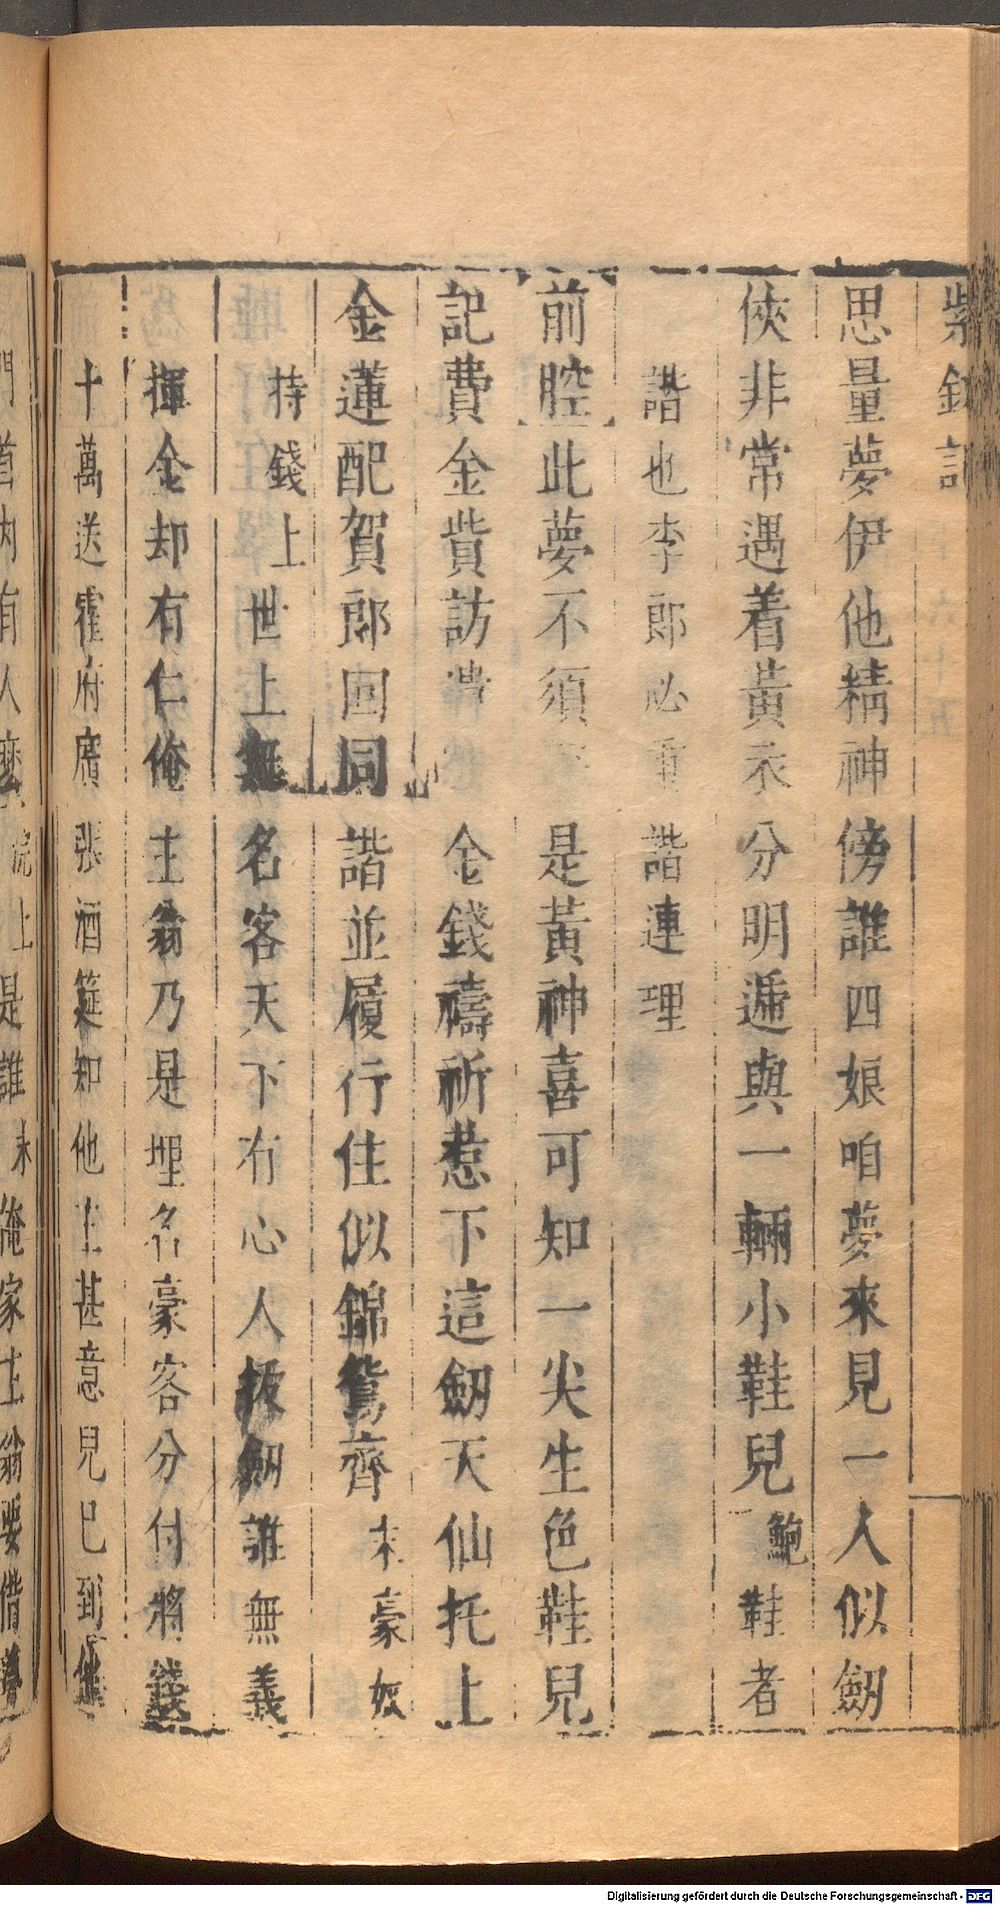 紫釵記
思量夢伊他精神傍誰四娘咱夢來見一人似劒
俠非常遇着黃衣分明遞與一輛小鞋兒鮑鞋者
諧也李郎必重諧連理
前腔此夢不須是黃神喜可知一尖生色鞋兒
記費金貲訪金錢禱祈惹下這劒天仙托上
金蓮配賀郎回同諧並履行住似錦鴛齊末豪奴
持錢上世上無名客天下有心人拔劒誰無義
揮金却有仁俺主翁乃是埋名豪客分付將錢
十萬送霍府廣張酒筵知他主甚意兒已到他
門首內有人麽浣上是誰末俺家主翁要借
Digitalisierung gefördert durch die Deutsche Forschungsgemeinschaft - DFG